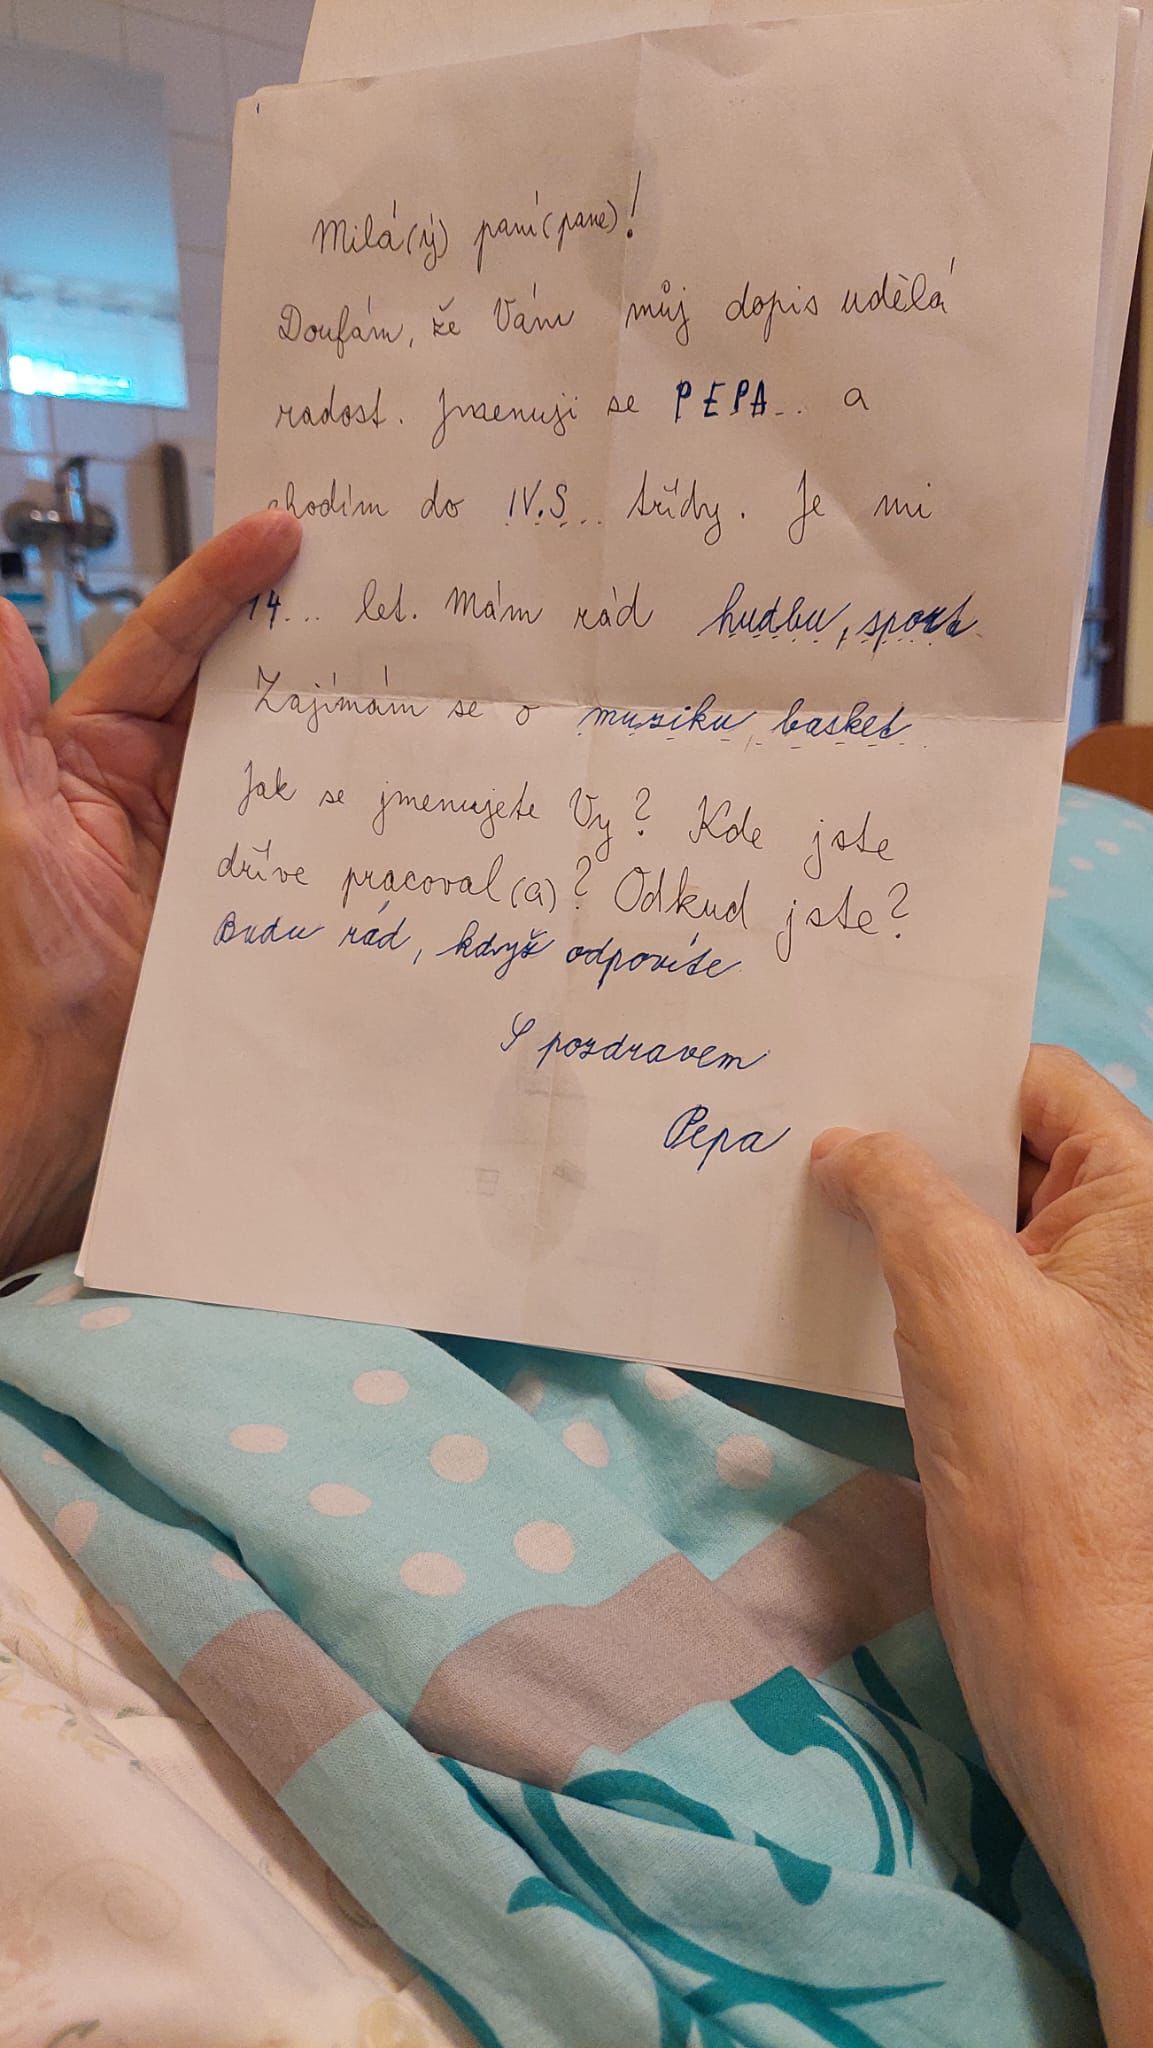 Milá(ý) paní(pane)!
Doufám, že Vám můj dopis udělá
radost. Jmenuji se PEPA... a
chodím do IV.S... třídy. Je mi
14... let. Mám rád hudbu, sport
Zajímám se o muziku, basket
Jak se jmenujete Vy? Kde jste
dříve pracoval(a)? Odkud jste?
Budu rád, když odpovíte
S pozdravem
Pepa